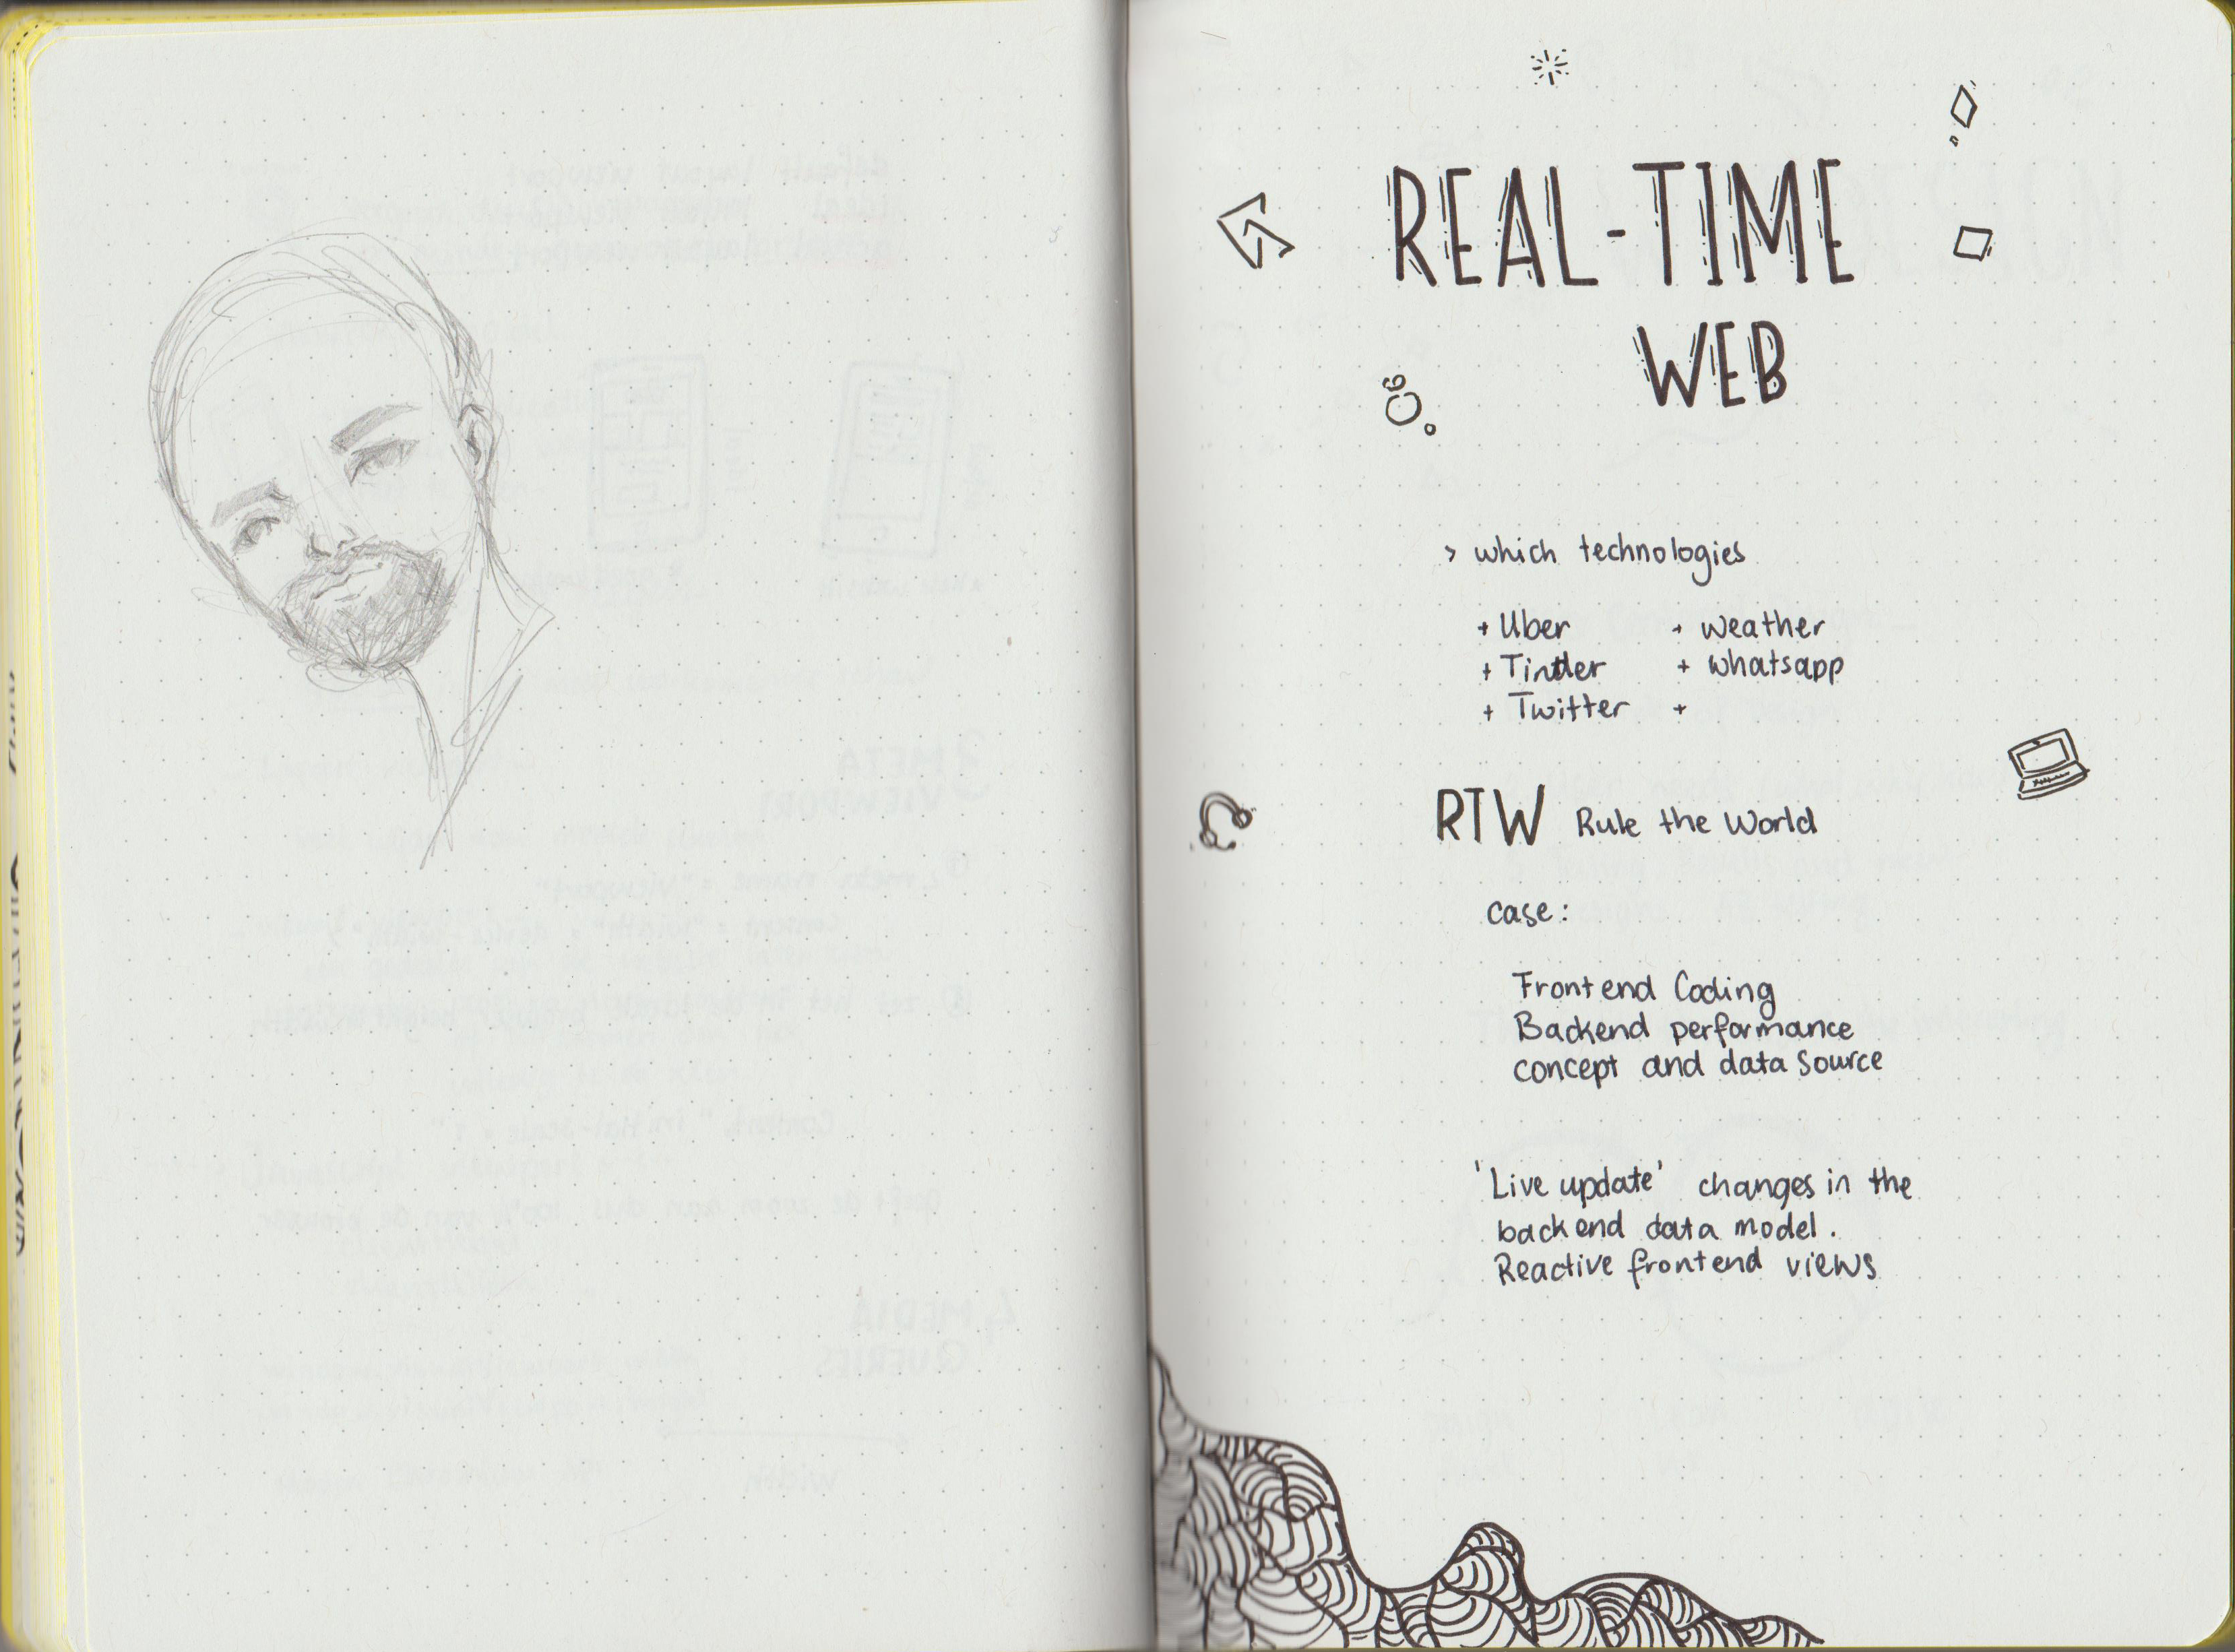 REAL-TIME
WEB
> which technologies
+ Uber + weather
+ Tinder + whatsapp
+ Twitter +
RTW Rule the World
case:
Frontend Coding
Backend performance
concept and data source
'Live update' changes in the
backend data model.
Reactive frontend views